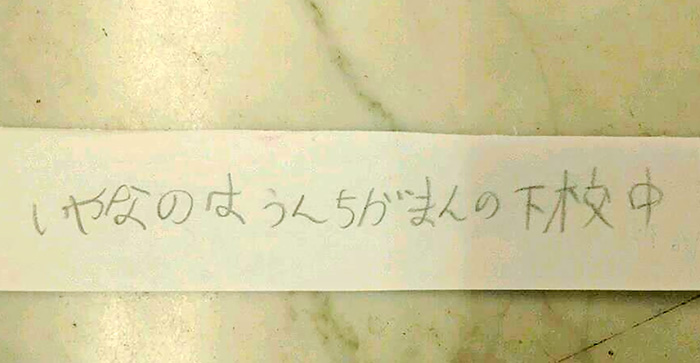 いやなのはうんちがまんの下校中